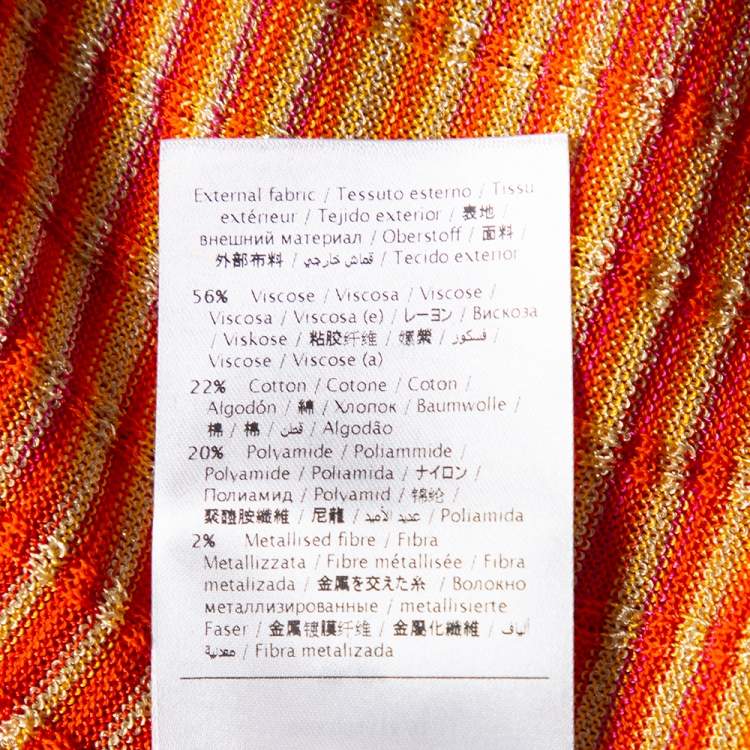 External fabric / Tessuto esterno / Tissu
extérieur / Tejido exterior / 表地 /
внешний материал / Oberstoff / 面料 /
外部布料 / قماش خارجي / Tecido exterior
56% Viscose / Viscosa / Viscose /
Viscosa / Viscosa (e) / レーヨン / Вискоза
/ Viskose / 粘胶纤维 / 嫘縈 / فسكوز /
Viscose / Viscose (a)
22% Cotton / Cotone / Coton /
Algodón / 綿 / Хлопок / Baumwolle /
棉 / 棉 / قطن / Algodão
20% Polyamide / Poliammide /
Polyamide / Poliamida / ナイロン /
Полиамид / Polyamid / 锦纶 /
聚醯胺纖維 / 尼龍 / عديد الأميد / Poliamida
2% Metallised fibre / Fibra
Metallizzata / Fibre métallisée / Fibra
metalizada / 金属を交えた糸 / Волокно
металлизированные / metallisierte
Faser / 金属镀膜纤维 / 金屬化纖維 / ألياف
معدنية / Fibra metalizada